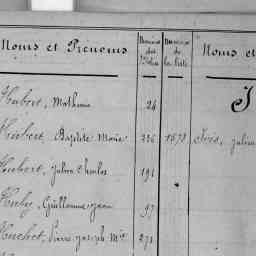 Noms et Prénoms
Numéros des
Numéros de la liste
Noms et
J
Hubert, Mathurin 24
Hubert, Baptiste Marie 226 1678
Hubert, Julien Charles 191
Huby, Guillaume Jean 97
Huchet, Pierre Joseph Mie 271